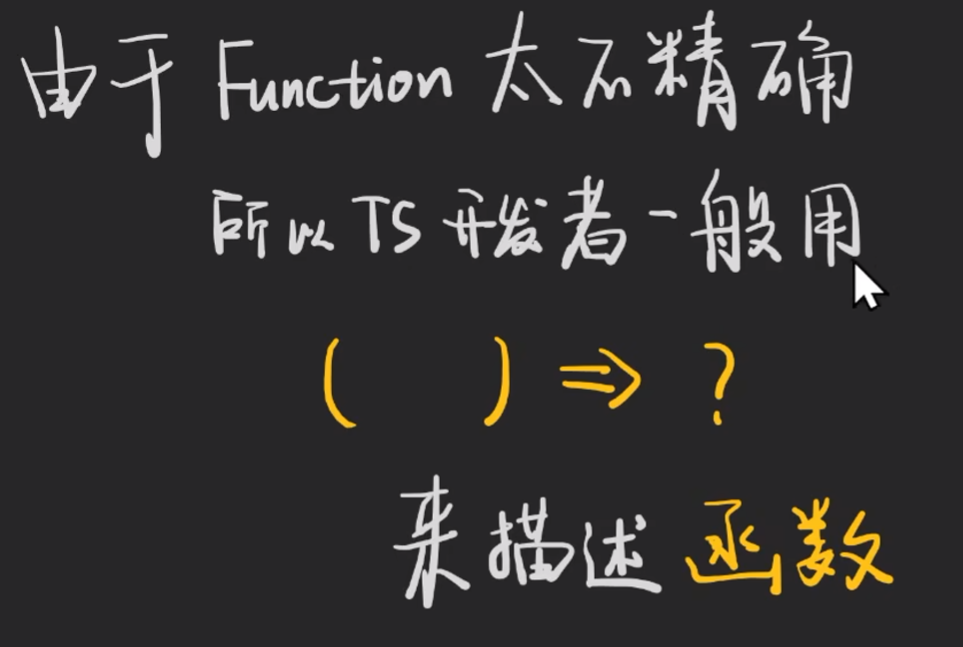 由于 Function 太不精确
所以 TS 开发者一般用
( ) => ?
来描述函数